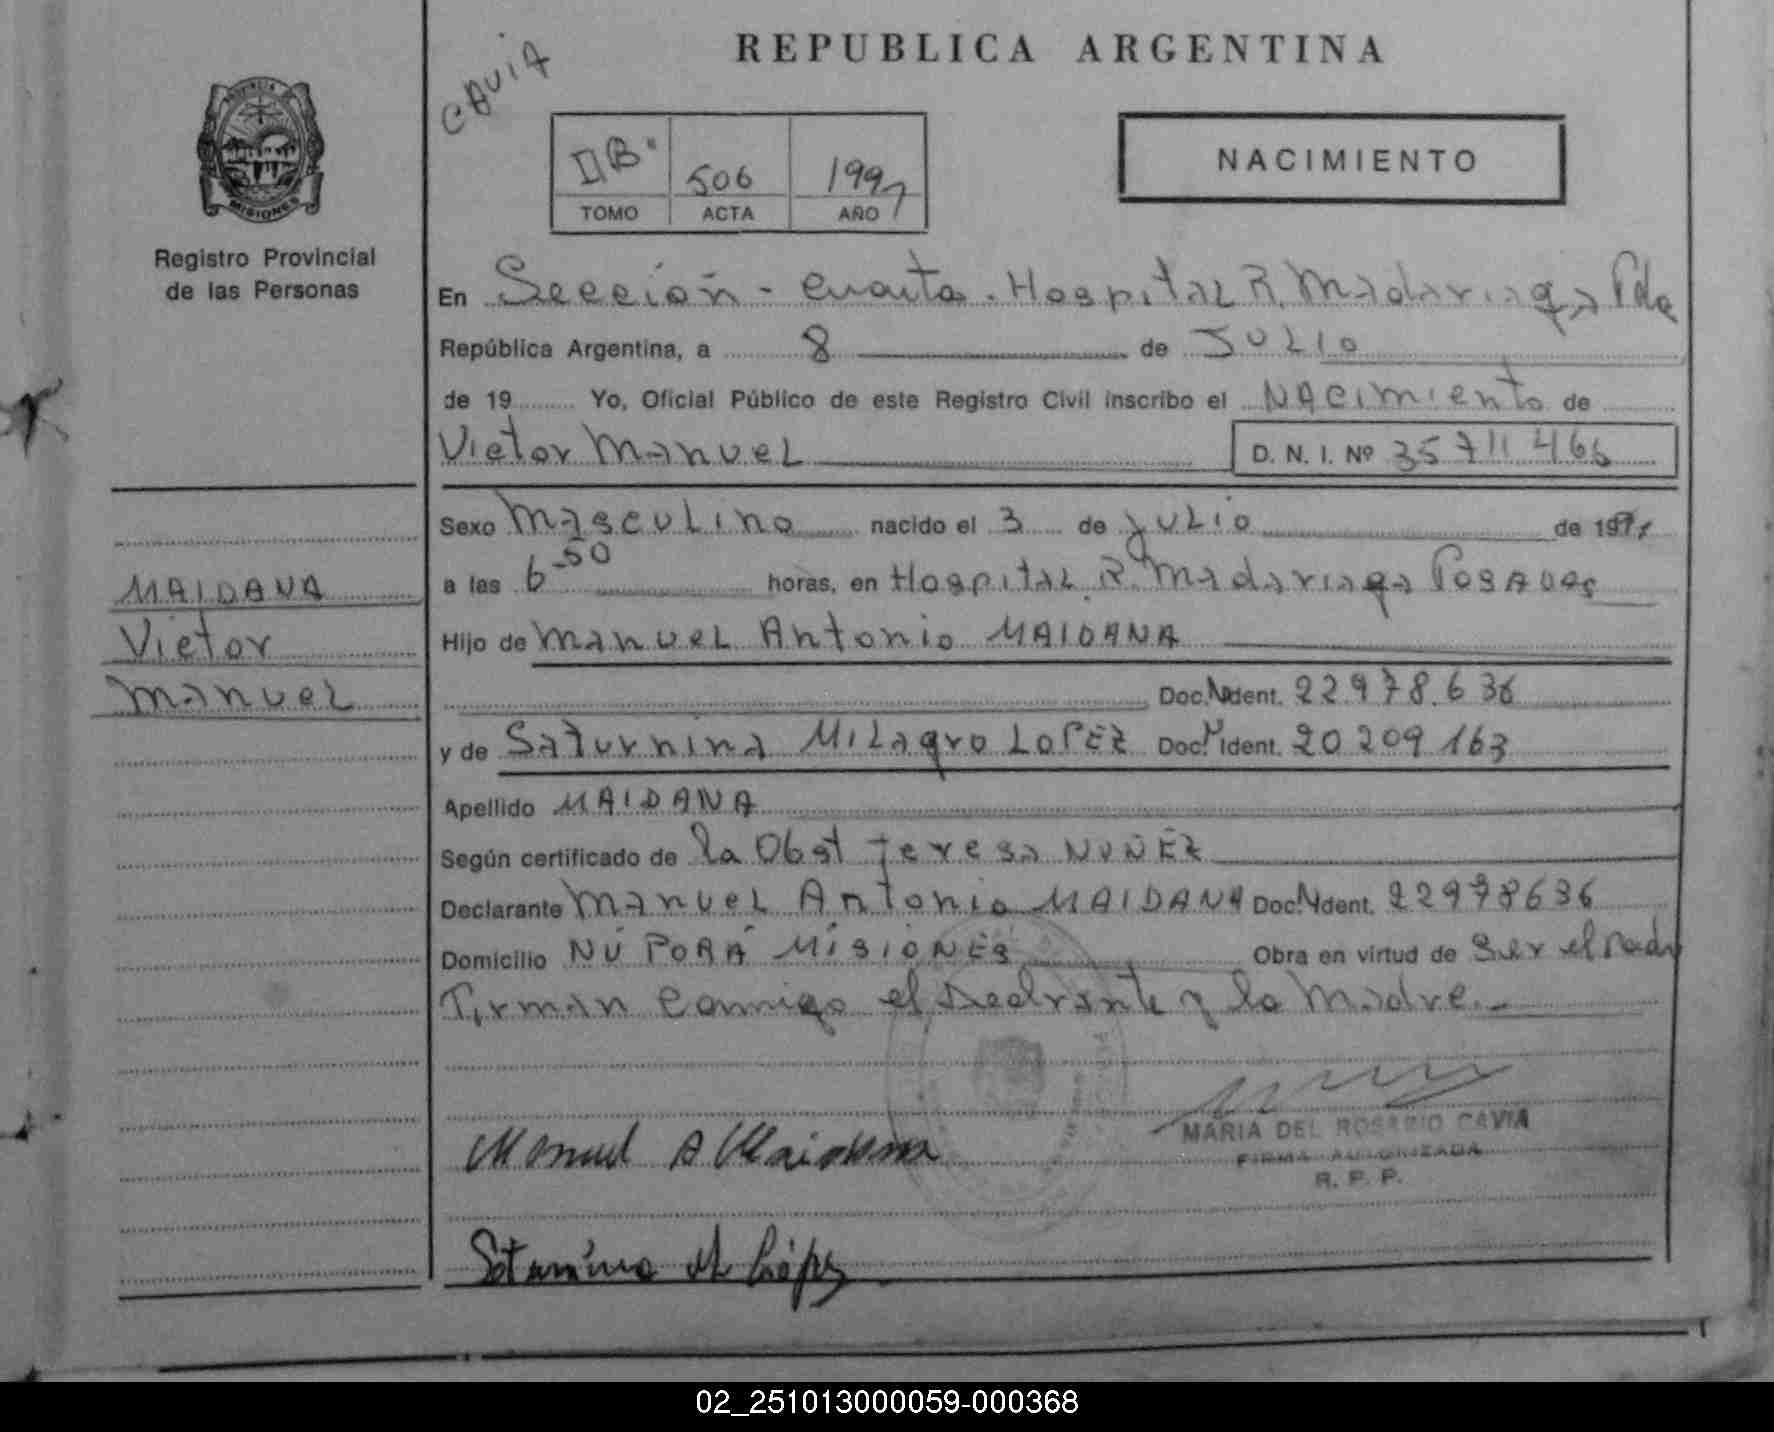 REPUBLICA ARGENTINA
CAVIA
PROVINCIA DE
MISIONES
Registro Provincial
de las Personas
II B"
506
1991
TOMO
ACTA
AÑO
NACIMIENTO
En Sección - Cuarta. Hospital R. Madariaga Pda
República Argentina, a 8 de JULIO
de 19 Yo, Oficial Público de este Registro Civil inscribo el NACimiento de
Victor Manuel D. N. I. Nº 35 711 466
Sexo Masculino nacido el 3 de julio de 1991
a las 6-50 horas, en Hospital R. Madariaga Posadas
Hijo de Manuel Antonio MAIDANA
Doc. Nident. 22978.636
y de Saturnina Milagro LOPEZ Doc. N Ident. 20 209 163
Apellido MAIDANA
Según certificado de la Obst Teresa NUÑEZ
Declarante Manuel Antonio MAIDANA Doc. Ndent. 22978636
Domicilio ÑU PORÁ MISIONES Obra en virtud de Ser el Padr
Firman Conmigo el Declrante y la Madre.-
MAIDANA
Victor
Manuel
MARIA DEL ROSARIO CAVIA
FIRMA AUTORIZADA
R. P. P.
Manuel A Maidana
Saturnina M López
02_251013000059-000368